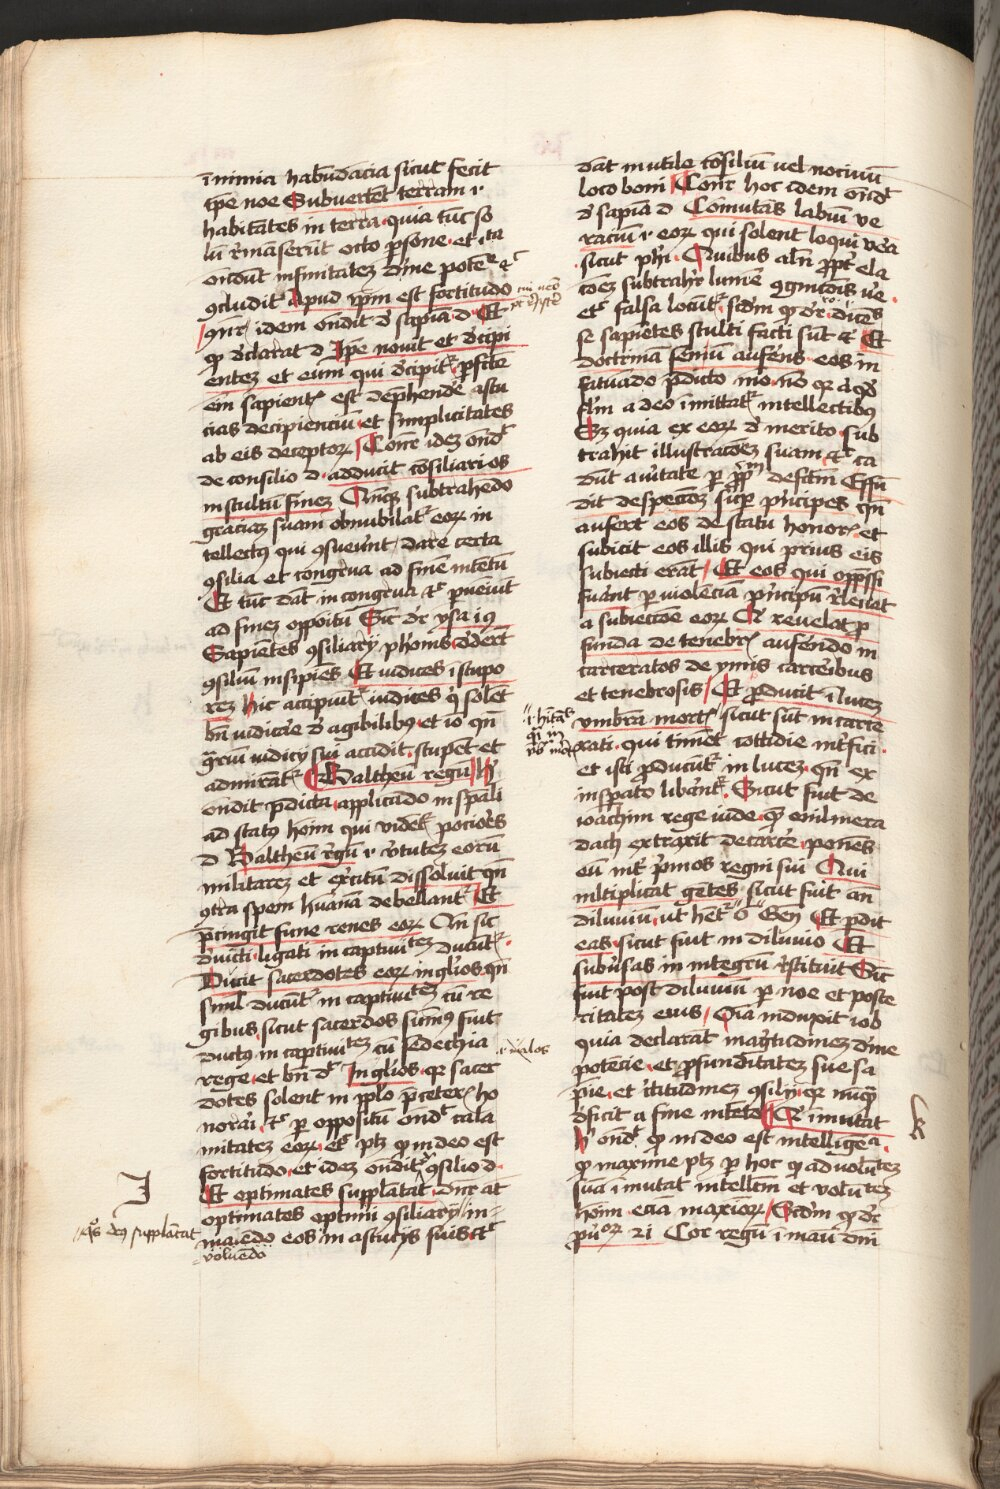 in nimia habūdācia sicut fecit
tp̄e noe Subuertēt terram .i.
habitātes in terra quia tūc so
lū rͤmāserūt octo p̄sone et ita
ondūt infinitatez diuīe potēͤ ⁊c̄
ꝯcludit Apud ip̄m est fortitudo
idem ondit d̓ sapīa d Et
qͦ dͨclarat d Ip̄e nouit et decipi
entez et eum qui decipitͬ p̄fcte
em̄ sapientꝭ est dep̄hendͤe astu
cias decipienciū et simplicitates
ab eis deceptoꝝ Cōnͬ idez ondͭ
de consilio d adducit cōsiliarios
in stultū finez Qn̄qꝫ subtrahēdo
graciaz suam obnubilatͬ eoꝝ in
tellectꝯ qui ꝯsueuͬnt dare certa
ꝯsilia et congrua ad finē intētū
Et tūc dāt incongrua et̄ puēiūt
ad finez oppōitū Sic d̄r ysa i 9
Sapiētes ꝯsiliarij pharaōis dedͬērt
ꝯsiliū insipiēs Et iudices ī stupo
rez hic accipiūtͬ iudices qͥ solēt
bn̄ iudicare d̓ agibilibꝰ et iō qn̄
ꝯͬriū iudicij sui accidit stupēt et
admirātͬ Baltheū regū hͥ
ondit p̄dicta applicādo in sp̄ali
ad statꝯ hōīm qui vidētͬ pociores
d Baltheū regū .i. v̓tutez eorū
militarez et exͬcitū dissoluit qn̄
ꝯtra spem huāna debellantͬ Et
p̄cingit fune renes eoꝝ Cū sic
dͥuicti ligati in captiuitez ducūtͬ
Ducit sacerdotes eoꝝ inglios qn̄
simil ducūtͬ in captiuitez cū re
gibus sicut sacerdos sūmꝯ fuit
ductꝯ in captiuitez cū sedechia
rege et bn̄ dͭ Inglios qꝛ sacer
dotes solent in pp̄lo p̄ceterꝭ ho
norari et̄ p oppositū ondͭ cala
mitatez eoꝝ et̄ ptꝫ qͦ in deo est
fortitudo et idez onditͬ ꝯsilio d
Et optimates supplātat ducat
optimates optimi ꝯsiliarij in-
maiēdo eos in astucijs suis et̄
voluēdo
quos deꝯ supplātat
.i. malos
dāt inutile cōsiliū vel nociuū
loco boni Cōnͬ hoc idem ondͭ
d̓ sapīa d Cōmutās labiū ve
raciū .i. eoꝝ qui solent loqui vͤa
sicut phī Quibus aln̄ pp̄t̓ ela
cōez subtrahͬ lumē ꝯgnicōis ve
et̄ falsa locūtͬ scdm qͦ d̄r ro. i dicētes
se sapiētes stulti facti sūt et̄ Et
doctrinā seniū aufērns eos in
fatuādo p̄dicto mō nō qꝛ aliqͦ
flm̄ a deo īmittatͬ intellectibꝯ
Sꝫ quia ex eoꝝ d̓merito sub
trahit illustracōez suam et̄ ca
dūt a vͥitate p pp̄m defcm Effū
dit despeccōez sup̄ p̄ncipes qn̄
aufert eos de statu honorꝭ et
subicit eos illis qui prius eis
subiecti erāt Et eos qui opp̄ssi
fuāt p violēciā p̄ncipū rͤleuat
a subieccōe eoꝝ Qͥ reuelat p
funda de tenebrꝭ aufēndo in
carceratos de ymis carcēibus
et tenebrosis Et pducit ī lucez
vmbrā mortꝭ sicut sūt in carce
rati qui timēt cottidie int̓fici
et isti pducūtͬ in lucez qn̄ ex
insp̄ato libāntͬ Sicut fuit de
ioachim rege iude qͤ euilmera
dach extraxit de carcͤe ponēs
eū int̓ p̄mos regni sui Qui
mltiplicat gētes sicut fuit an̄
diluuiū ut hēt̓ 6 Gen̄ Et pdit
eas sicut fuit in diluuio Et
subu̓sas in integrū rͤstituit Sic
fuit post diluuiū p noe et poste
ritatez eius Qīa induxit iob
quia declarāt magͥtudinez diuīe
potēcie et p̄funditatez sue sa
pīe et ͨtitudinez ꝯsilij qꝛ nūqͣ
dͤficit a fine intēto Qͥ īmutat
hͥ ondͭ qͦ in deo est intelligēcia
qͦ maxime ptꝫ p hoc qͦ ad volūtez
suā īmutat intellcm et volūtez
hōīm eciā maxioꝝ Scdm qͦ d̄r
pu̓oꝝ 21 Cor regū ī manū dn̄i